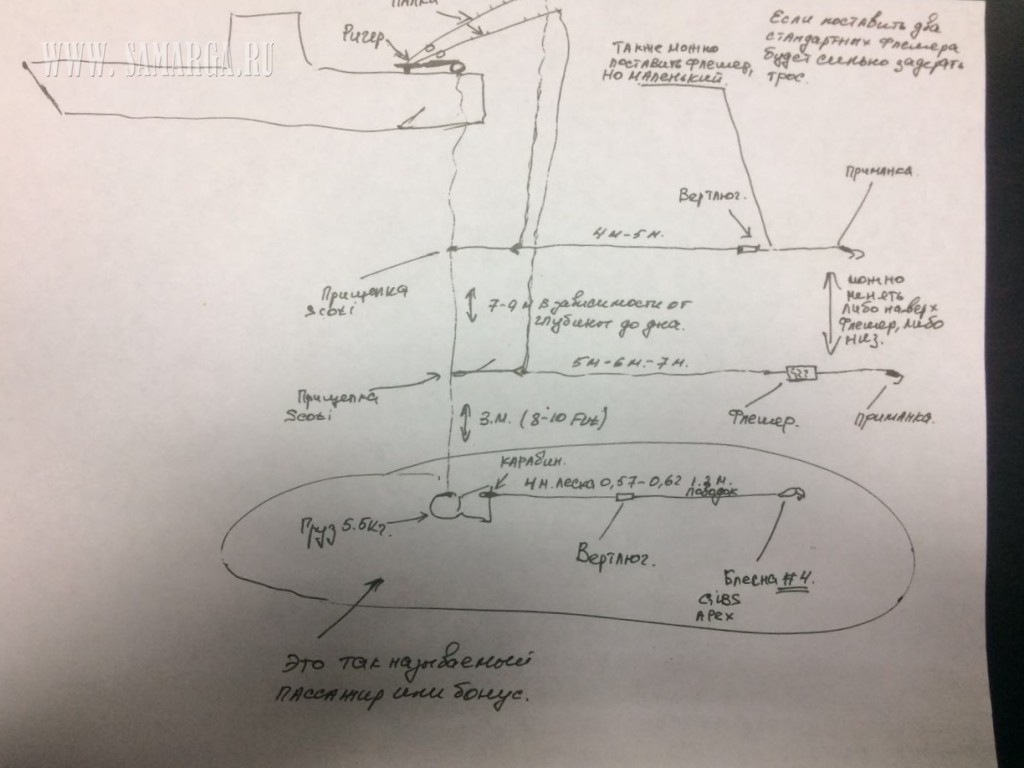 WWW.SAMARGA.RU
Палки
Ригер
Также можно
поставить флешер,
но маленький
Если поставить два
стандартных флешера
будет сильно задерать
трос.
Вертлюг.
Приманка.
4м-5м.
Прищепка
Scoti
7-9 м в зависимости от
глубины до дна.
можно
менять
либо наверх
флешер, либо
низ.
5м-6м-7м.
Прищепка
Scoti
Флешер.
Приманка.
3.м. (8-10 Fut)
Карабин.
4м. леска 0,57-0,62
1.2 м.
поводок
Груз 5.5кг.
Вертлюг.
Блесна #4.
GiBS
APEX
Это так называемый
пассажир или бонус.